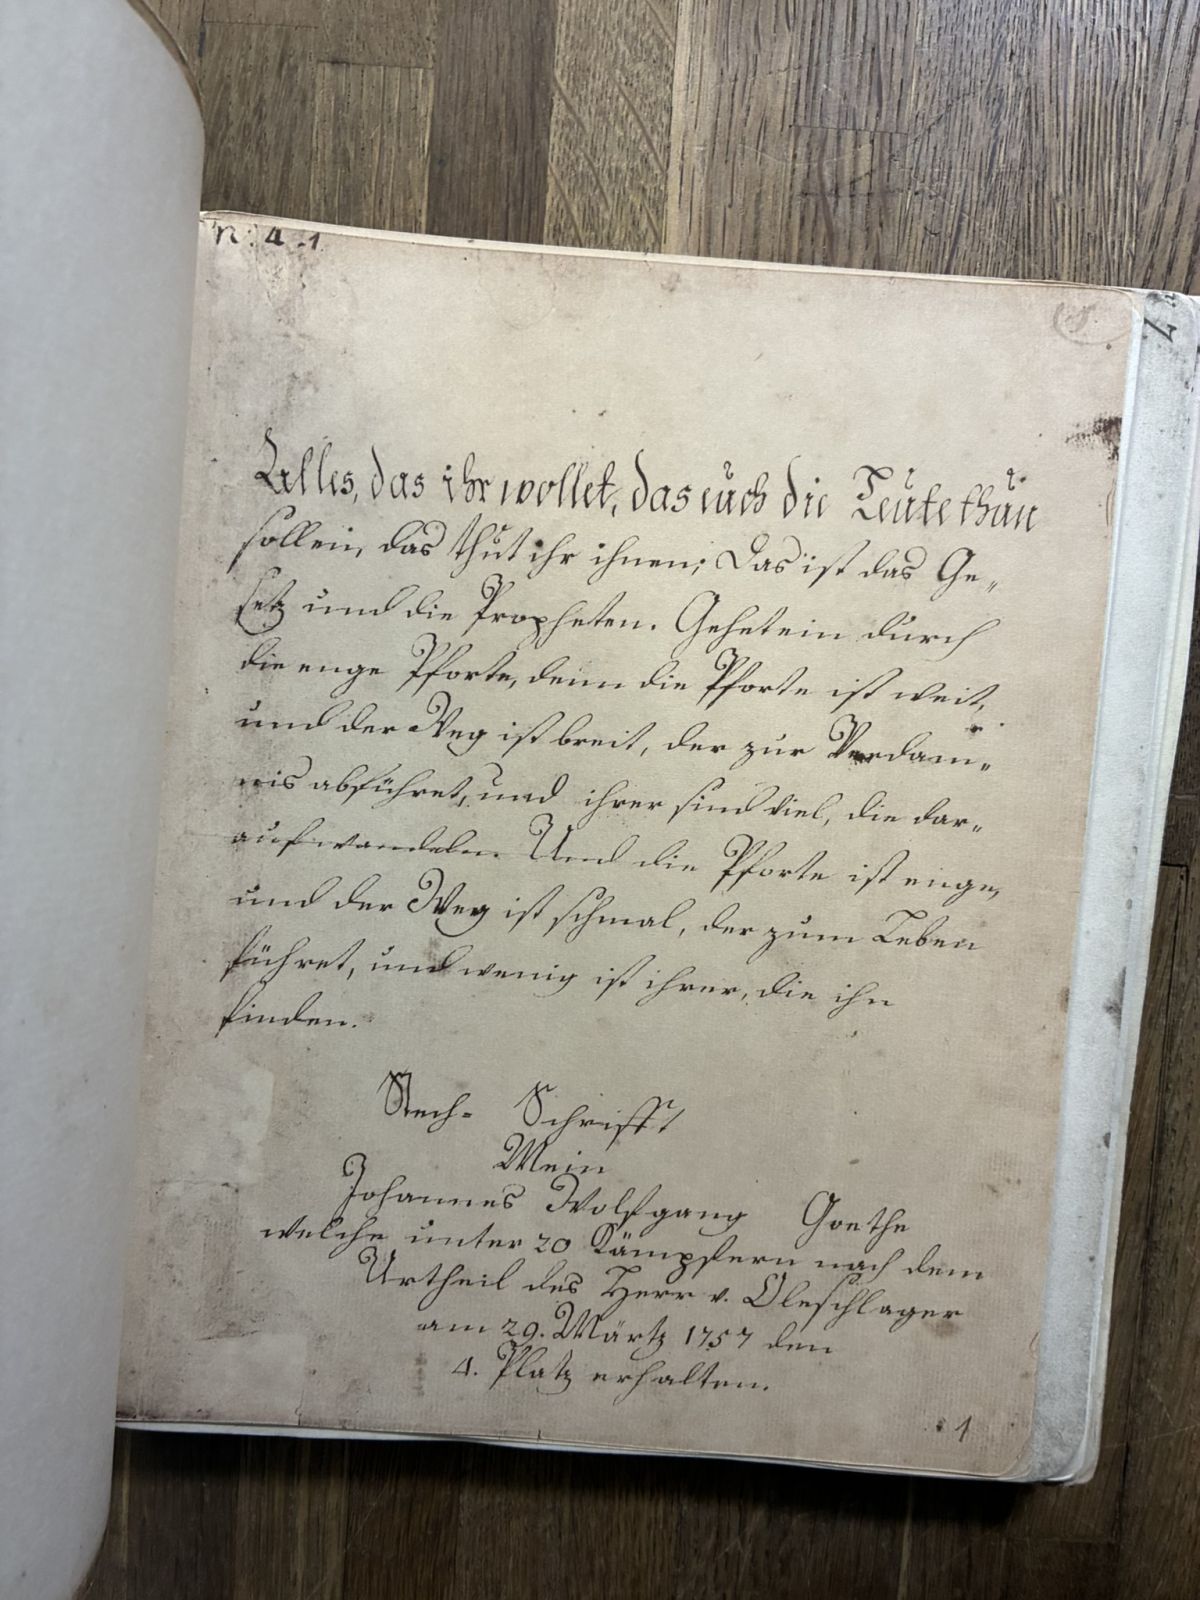 n. 4. 1
Alles, das ihr wollet, das euch die Leute thun
sollein, das thut ihr ihnen; Das ist das Ge„
setz und die Propheten. Gehet ein durch
die enge Pforte, denn die Pforte ist weit,
und der Weg ist breit, der zur Verdam„
nis abführet, und ihrer sind viel, die dar„
auf wandeln. Und die Pforte ist enge,
und der Weg ist schmal, der zum Leben
führet, und wenig ist ihrer, die ihn
finden.
Stech- Schrifft
Mein
Johannes Wolfgang Goethe
welche unter 20 Kämpffern nach dem
Urtheil des Herr v. Oleschlager
am 29. Märtz 1757 den
4. Platz erhalten.
1